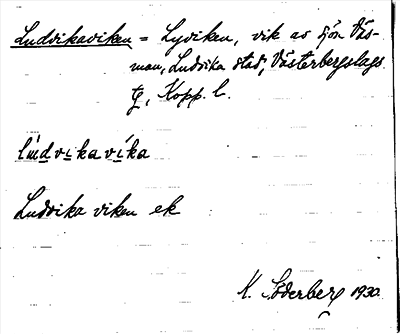 Ludvikaviken = Lyviken, vik av sjön Väs-
man, Ludvika stad, Västerbergslags
tg, Kopp. l.
Ludvika viken ek
K. Söderberg 1930.